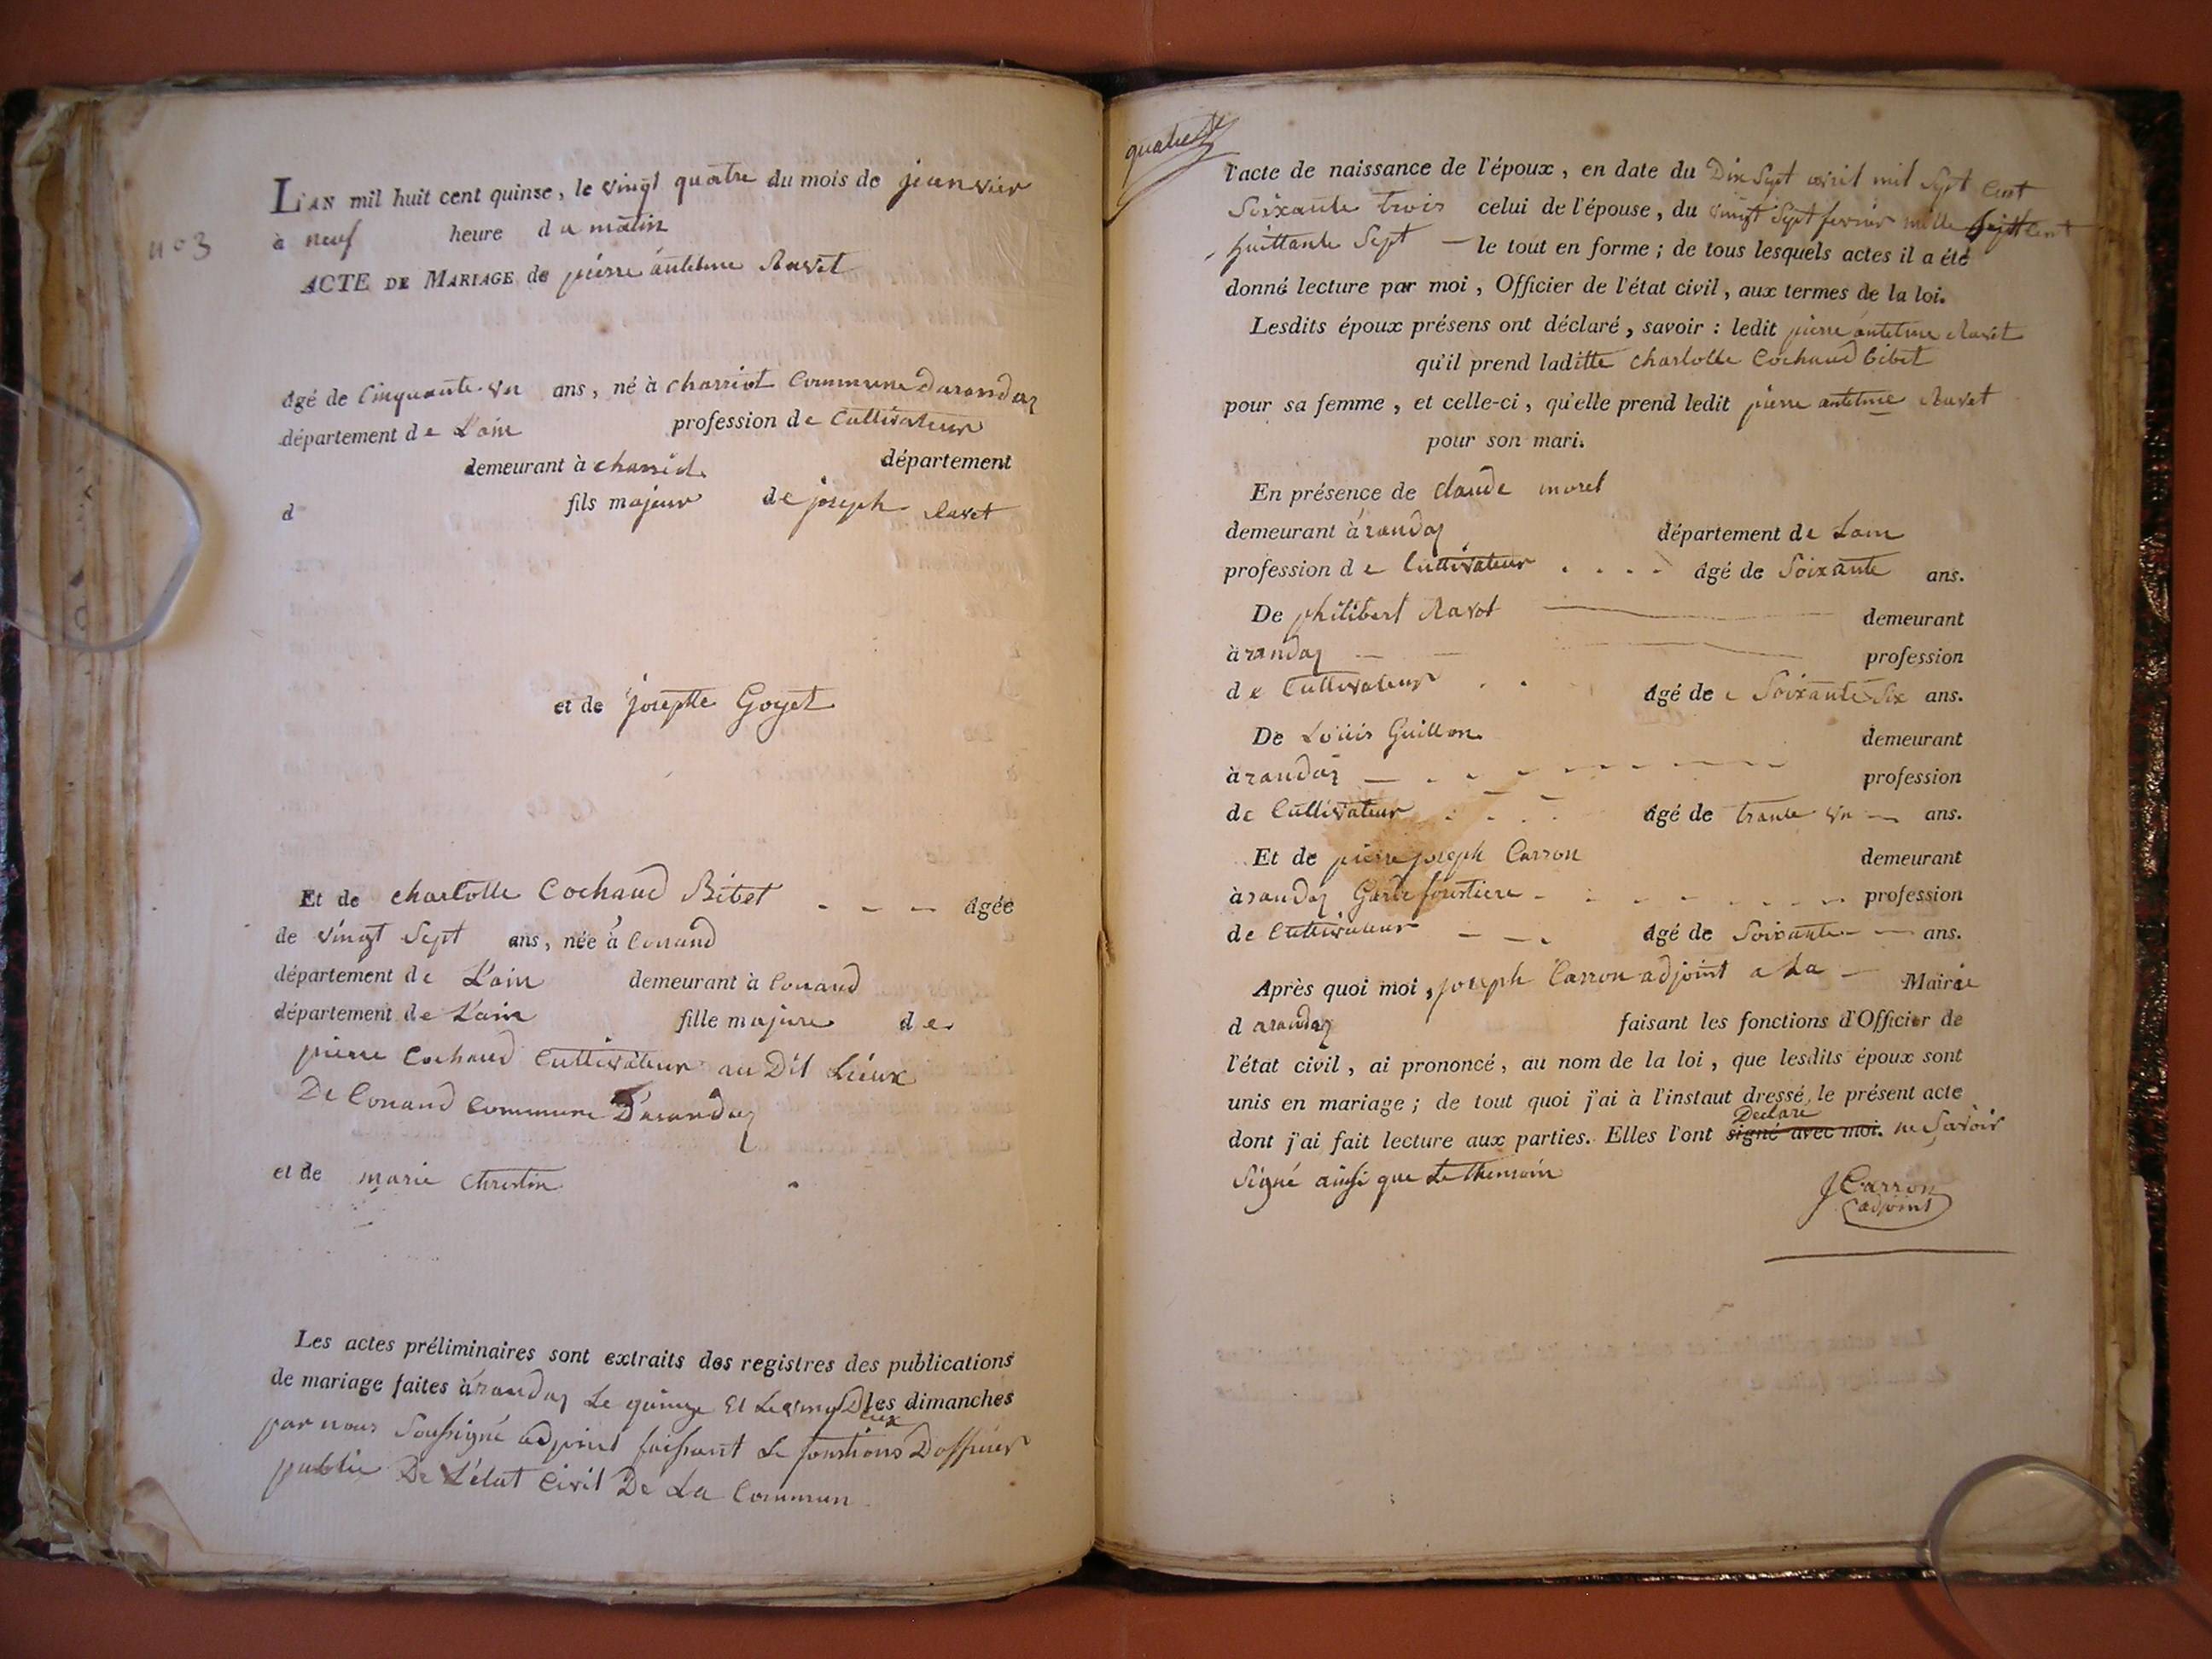 n° 3
L'AN mil huit cent quinse, le vingt quatre du mois de jeanvier
à neuf heure du matin
ACTE DE MARIAGE de pierre antelme Ravet
âgé de Cinquante un ans, né à charriot Commune darandaz
département de L'ain profession de Cultivateur
demeurant à charriot département
d fils majeur de joseph Ravet
et de josephte Goyet
Et de charlotte Cochaud Bibet âgée
de vingt Sept ans, née à Conand
département de L'ain demeurant à Conand
département de L'ain fille majure de
pierre Cochaud Cultivateur au Dit Lieux
De Conand Commune D'arandaz
et de marie Christin
Les actes préliminaires sont extraits des registres des publications
de mariage faites àrandaz Le quinze Et Le vingt Deux les dimanches
par nous Soussigné adjoint faissant Le fonctions Dofficier
public De L'état Civil De La Commun
quatre
l'acte de naissance de l'époux, en date du Dix Sept avril mil Sept Cent
Soixante trois celui de l'épouse, du vingt Sept fevrier mille Sept Cent
huittante Sept — le tout en forme ; de tous lesquels actes il a été
donné lecture par moi, Officier de l'état civil, aux termes de la loi.
Lesdits époux présens ont déclaré, savoir : ledit pierre antelme Ravet
qu'il prend laditte charlotte Cochaud bibet
pour sa femme, et celle-ci, qu'elle prend ledit pierre antelme Ravet
pour son mari.
En présence de claude morel
demeurant àrandaz département de Lain
profession de Cultivateur . . . . âgé de Soixante ans.
De philibert Ravot demeurant
àrandaz profession
de Cultivateur . . âgé de Soixante Six ans.
De Louis Guillon demeurant
àrandaz profession
de Cultivateur âgé de trante un ans.
Et de pierre joseph Carron demeurant
àrandaz Garde forestiere profession
de Cultivateur âgé de Soixante ans.
Après quoi moi, joseph Carron adjoint a La Mairie
d arandaz faisant les fonctions d'Officier de
l'état civil, ai prononcé, au nom de la loi, que lesdits époux sont
unis en mariage ; de tout quoi j'ai à l'instant dressé le présent acte
Declare
dont j'ai fait lecture aux parties. Elles l'ont signé avec moi. ne Savoir
Signé ainsi que Le themoin
J Carron
adjoint